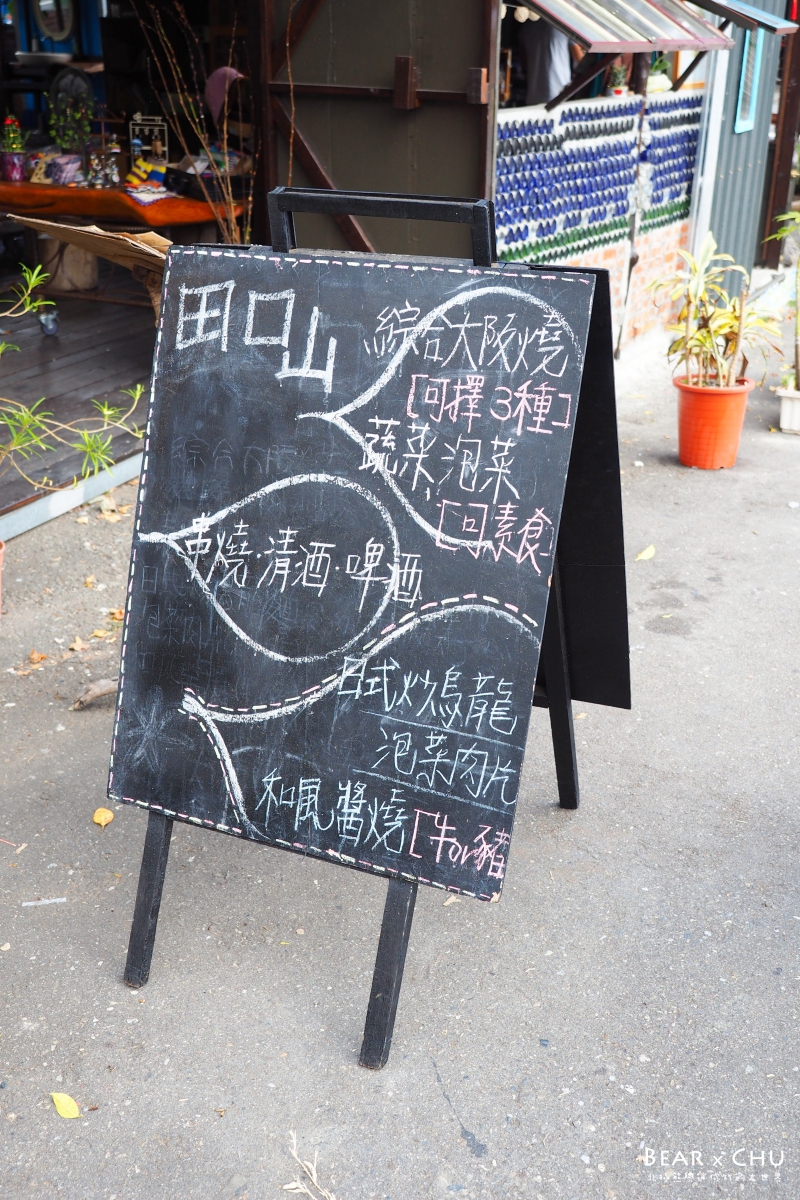 田口山
綜合大阪燒
[可擇3種]
蔬菜泡菜
[可素食]
串燒·清酒·啤酒
日式炒烏龍
泡菜肉片
和風醬燒[牛or豬]
BEAR x CHU